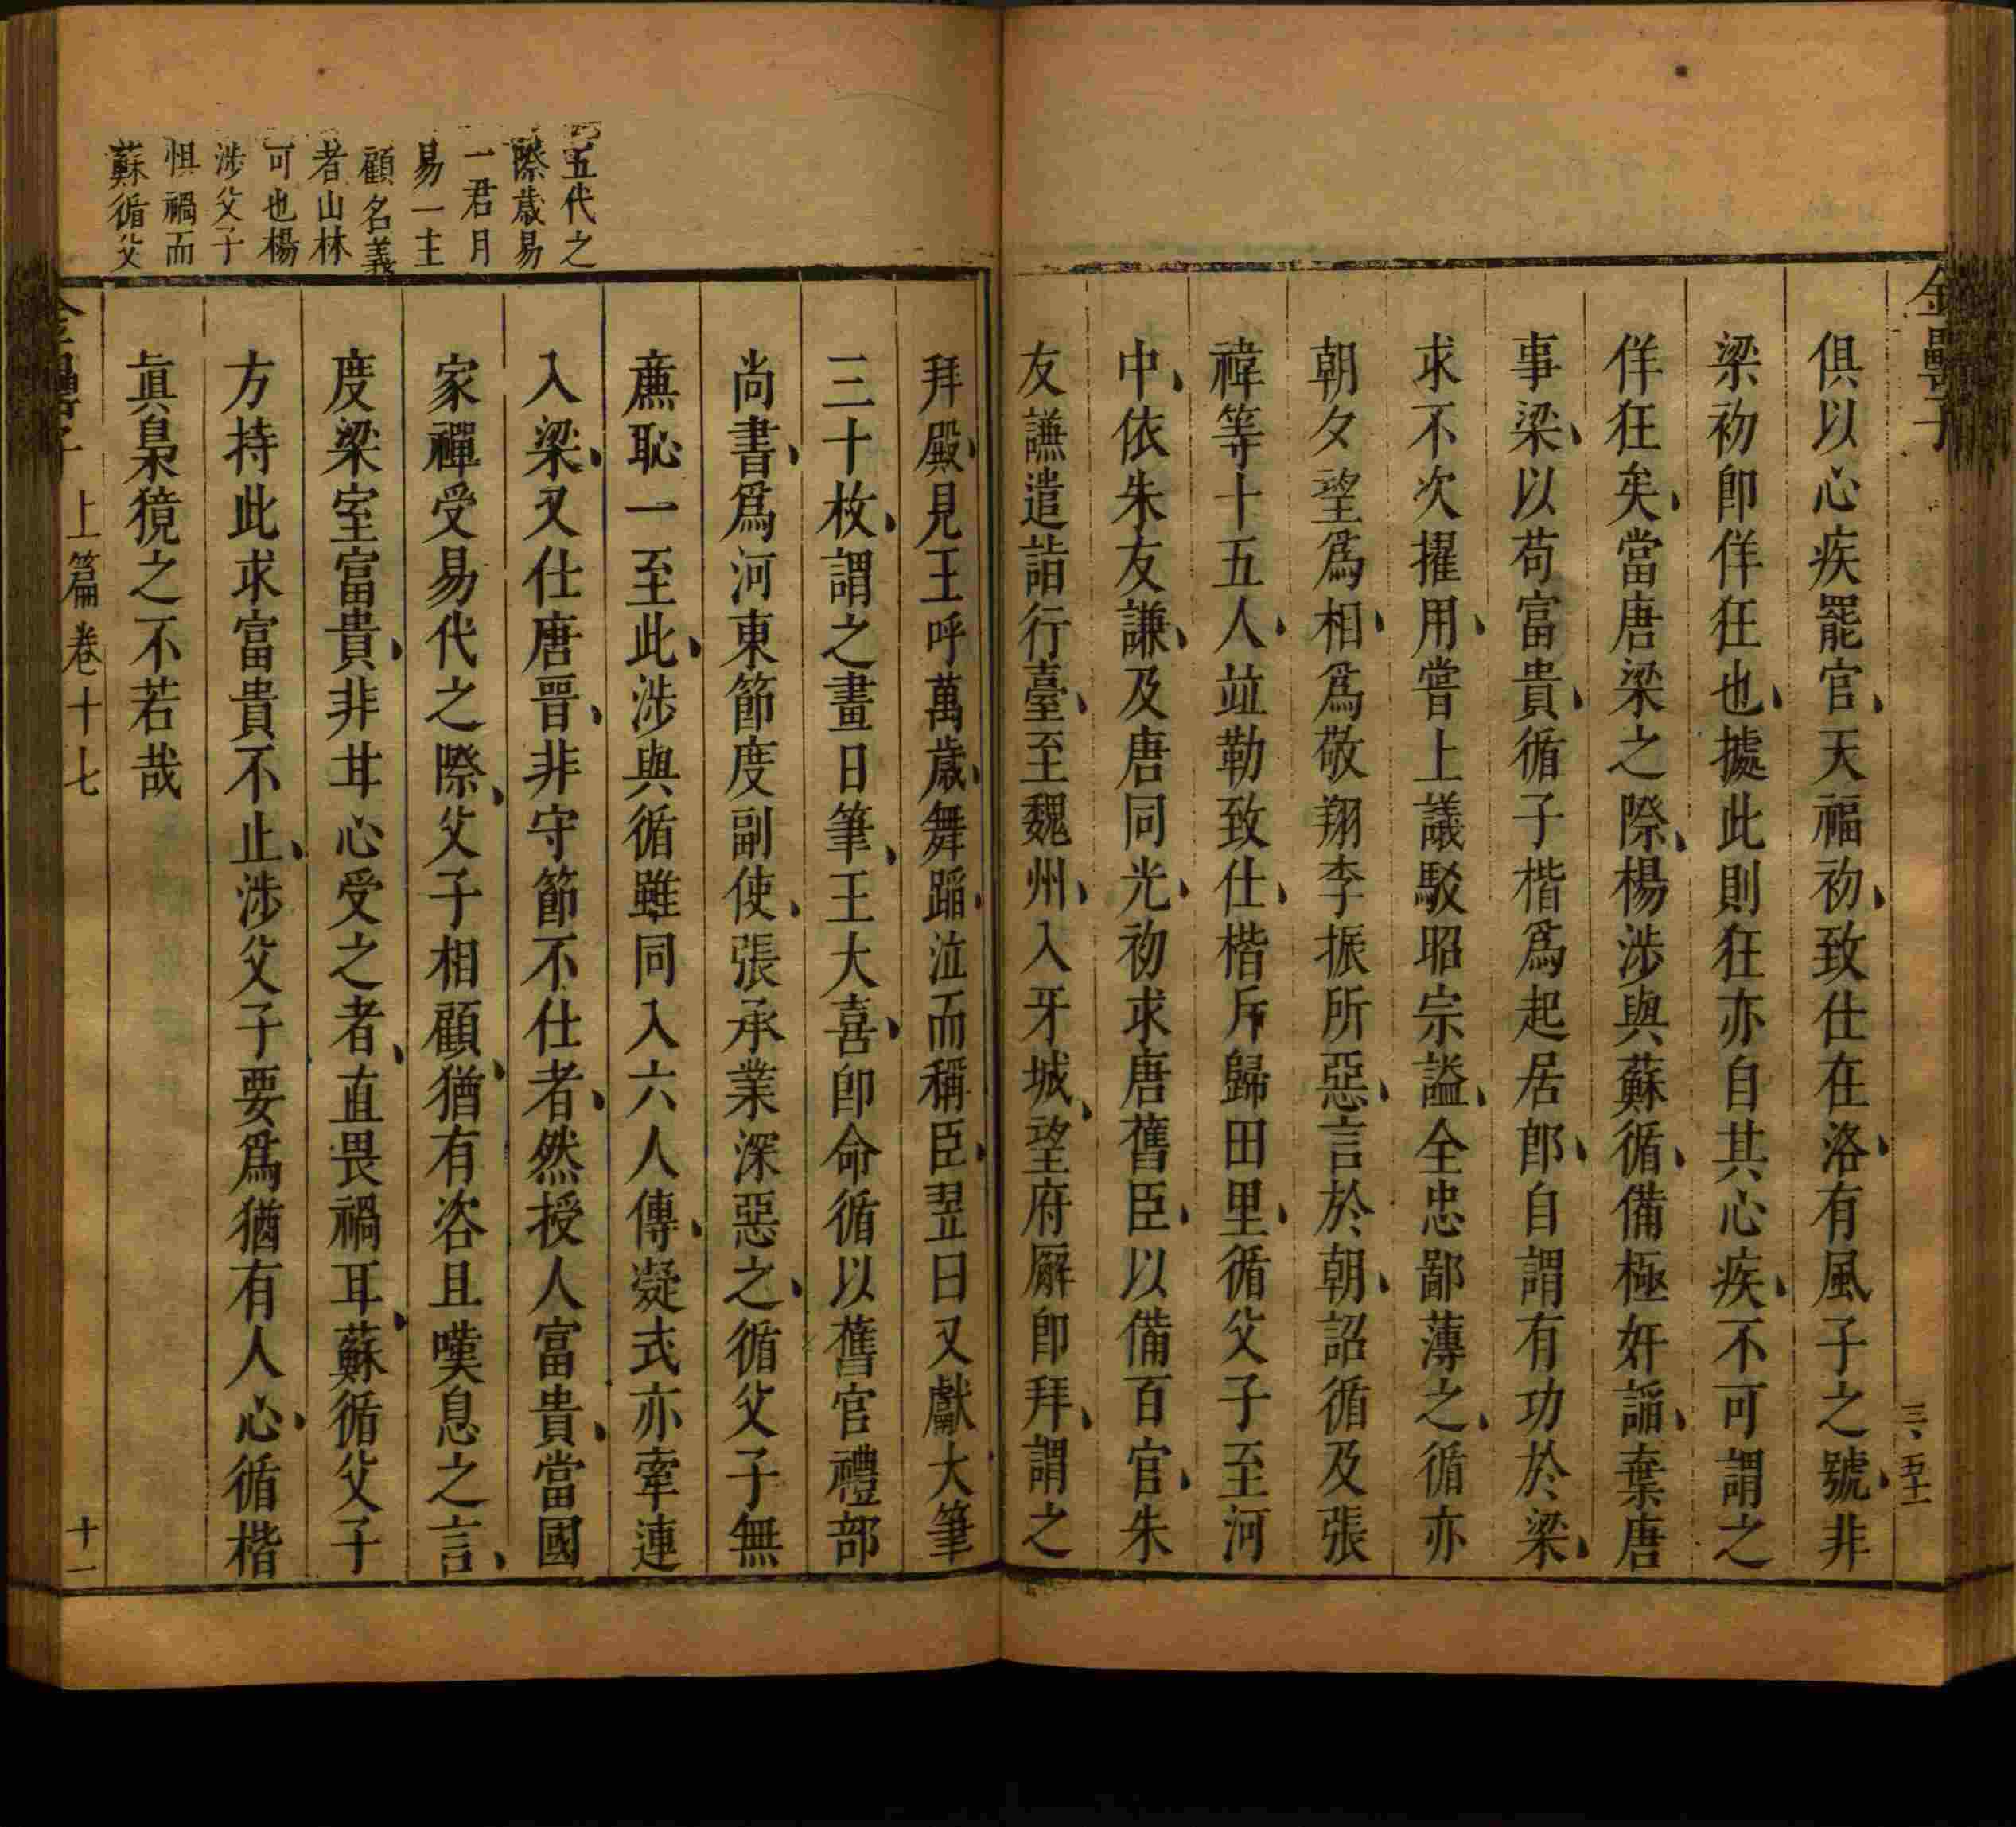 金罍子
三、五十一
俱以心疾罷官、天福初、致仕在洛、有風子之號、非
梁初卽佯狂也、據此則狂亦自其心疾、不可謂之
佯狂矣、當唐梁之際、楊涉與蘇循、備極奸謟、棄唐
事梁、以苟富貴、循子楷爲起居郎、自謂有功於梁、
求不次擢用、嘗上議駁昭宗謚、全忠鄙薄之、循亦
朝夕望爲相、爲敬翔李振所惡、言於朝、詔循及張
禕等十五人、竝勒致仕、楷斥歸田里、循父子至河
中、依朱友謙、及唐同光、初求唐舊臣、以備百官、朱
友謙遣詣行臺、至魏州、入牙城、望府廨卽拜、謂之
五代之
際歲易
一君月
易一主
顧名義
者山林
可也楊
涉父子
惧禍而
蘇循父
拜殿、見王呼萬歲、舞蹈、泣而稱臣、翌日又獻大筆
三十枚、謂之畫日筆、王大喜、卽命循以舊官禮部
尚書、爲河東節度副使、張承業深惡之、循父子無
亷恥一至此、涉與循雖同入六人傳、凝式亦牽連
入梁、又仕唐晉、非守節不仕者、然授人富貴、當國
家禪受易代之際、父子相顧、猶有咨且嘆息之言、
度梁室富貴、非甘心受之者、直畏禍耳、蘇循父子
方持此求富貴不止、涉父子要爲猶有人心、循楷
眞梟獍之不若哉
上篇卷十七
十一